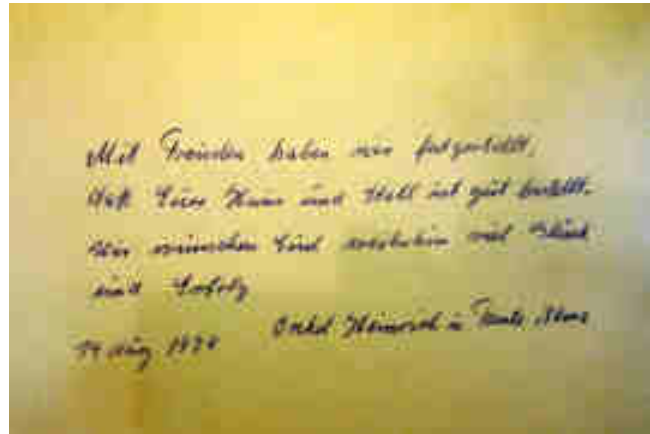 Mit Freuden haben wir festgestellt,
daß Euer Haus und Stall ist gut bestellt.
Wir wünschen Euch weiterhin viel Glück
und Erfolg
Onkel Heinrich u Tante
14 Aug